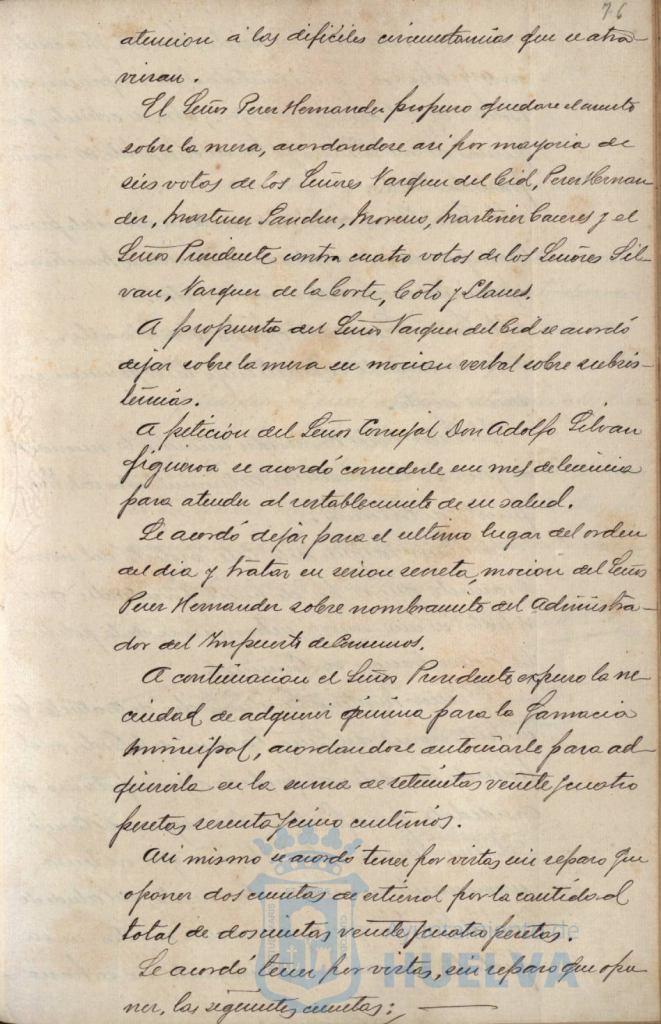 76
atencion á las dificiles circunstancias que se atra-
viesan.
El Señor Perez Hernandez propuso quedase el asunto
sobre la mesa, acordandose asi por mayoria de
seis votos de los Señores Vazquez del Cid, Perez Hernan
dez, Martinez Sanchez, Moreno, Martinez Caceres y el
Señor Presidente contra cuatro votos de los Señores Sil-
van, Vazquez de la Corte, Coto y Llanes.
A propuesta del Señor Vazquez del Cid se acordó
dejar sobre la mesa su mocion verbal sobre subsis-
tencias.
A petición del Señor Concejal Don Adolfo Silvan
Figueroa se acordó concederle un mes de licencia
para atender al restablecimiento de su salud.
Se acordó dejar para el ultimo lugar del orden
del dia y tratar en sesion secreta, mocion del Señor
Perez Hernandez sobre nombramiento del Administra-
dor del Impuesto de Consumos.
A continuacion el Señor Presidente expuso la ne
cesidad de adquirir quinina para la Farmacia
Municipal, acordandose autorizarle para ad-
quirirla en la suma de setecientas veinte y cuatro
pesetas sesenta y cinco centimos.
Asi mismo se acordó tener por vistas sin reparo que
oponer dos cuentas de estiercol por la cantidad
total de doscientas veinte y cuatro pesetas.
Se acordó tener por vistas, sin reparo que opo-
ner, las siguientes cuentas:
Ayuntamiento de
HUELVA